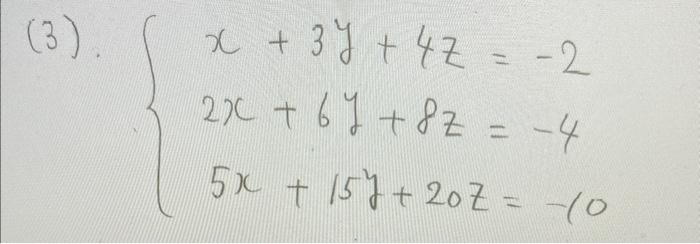 (3). x + 3y + 4z = -2
2x + 6y + 8z = -4
5x + 15y + 20z = -10